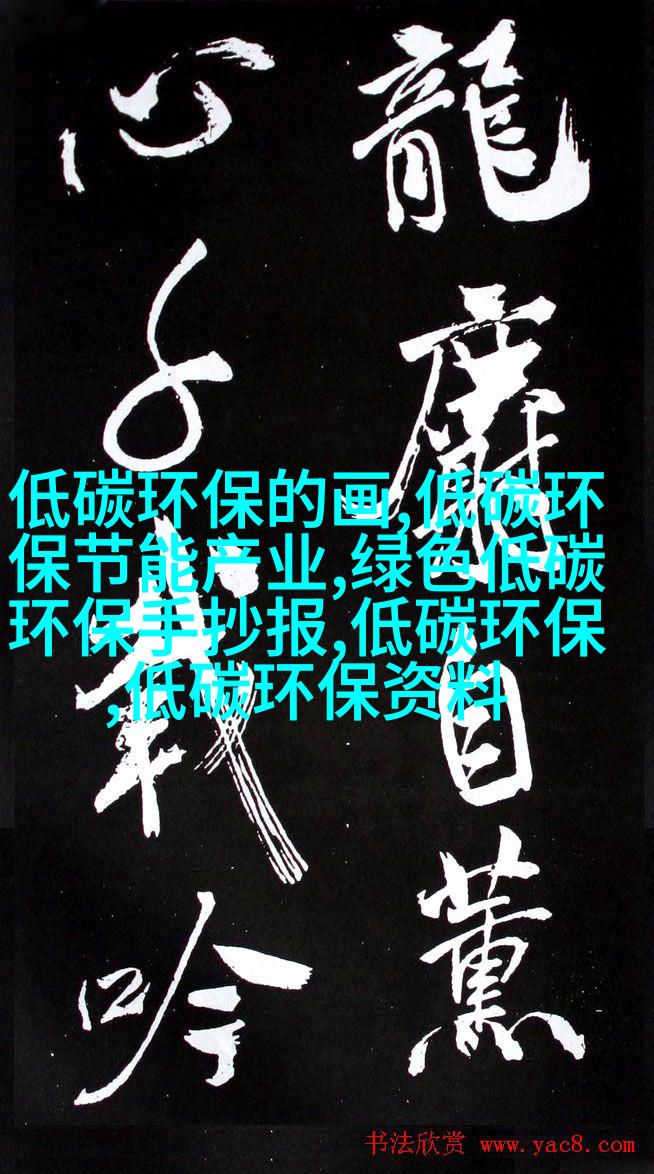 龍麝自薰
心千載吟
低碳环保的画,低碳环
保节能产业,绿色低碳
环保手抄报,低碳环保
,低碳环保资料
书法欣赏 www.yac8.com